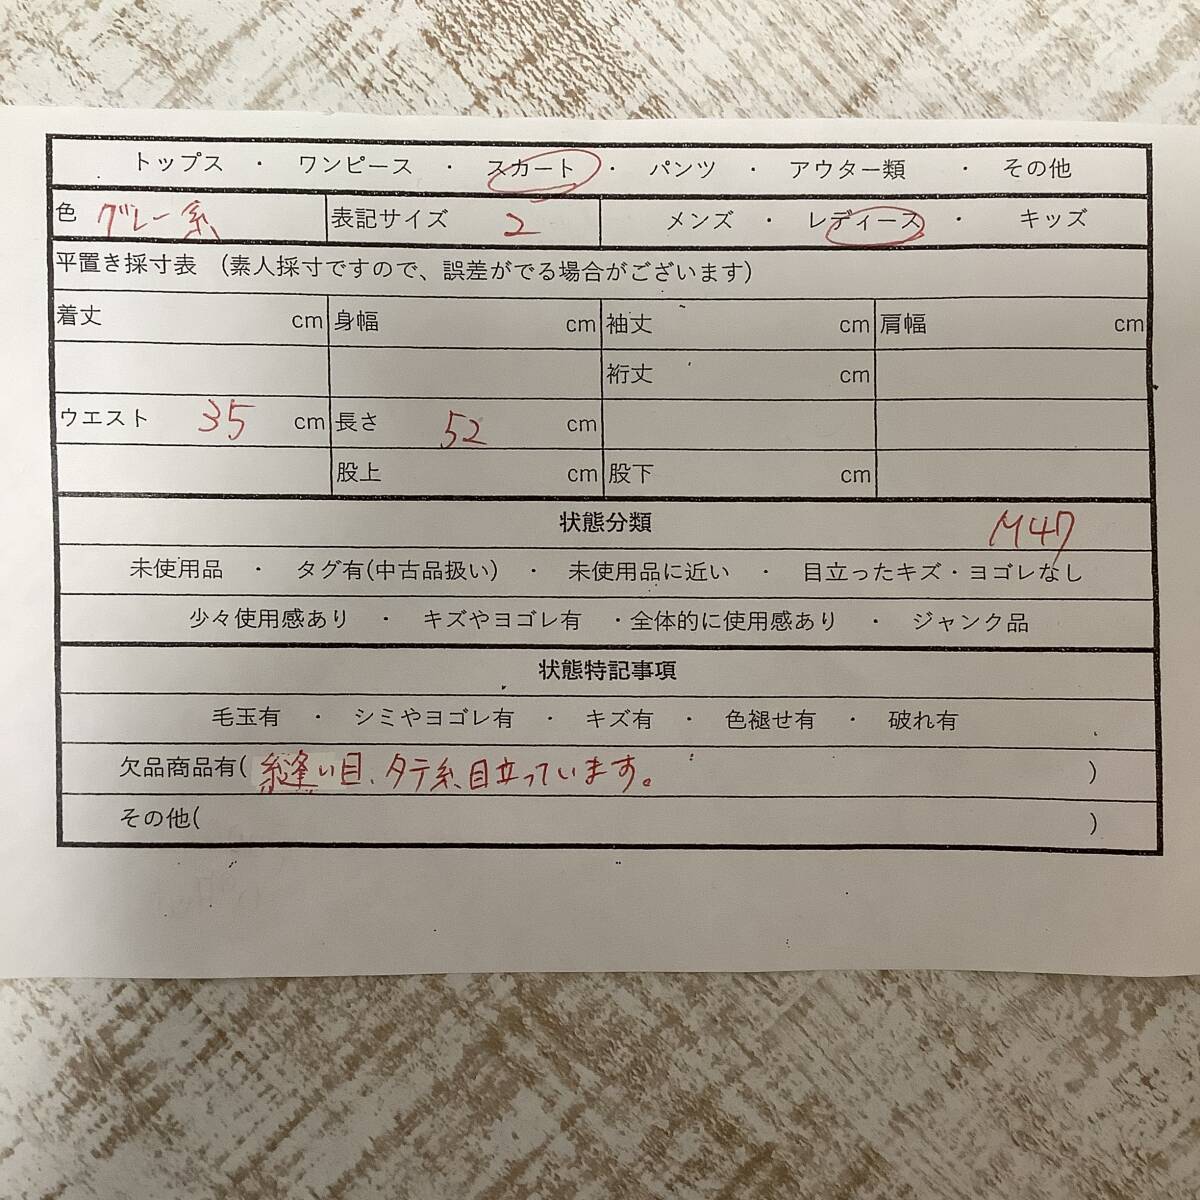 トップス ・ ワンピース ・ スカート ・ パンツ ・ アウター類 ・ その他
色 グレー系 表記サイズ 2 メンズ ・ レディース ・ キッズ
平置き採寸表 (素人採寸ですので、誤差がでる場合がございます)
着丈 cm 身幅 cm 袖丈 cm 肩幅 cm
裄丈 cm
ウエスト 35 cm 長さ 52 cm
股上 cm 股下 cm
状態分類 M47
未使用品 ・ タグ有(中古品扱い) ・ 未使用品に近い ・ 目立ったキズ・ヨゴレなし
少々使用感あり ・ キズやヨゴレ有 ・全体的に使用感あり ・ ジャンク品
状態特記事項
毛玉有 ・ シミやヨゴレ有 ・ キズ有 ・ 色褪せ有 ・ 破れ有
欠品商品有( 縫い目、タテ糸、目立っています。 )
その他( )